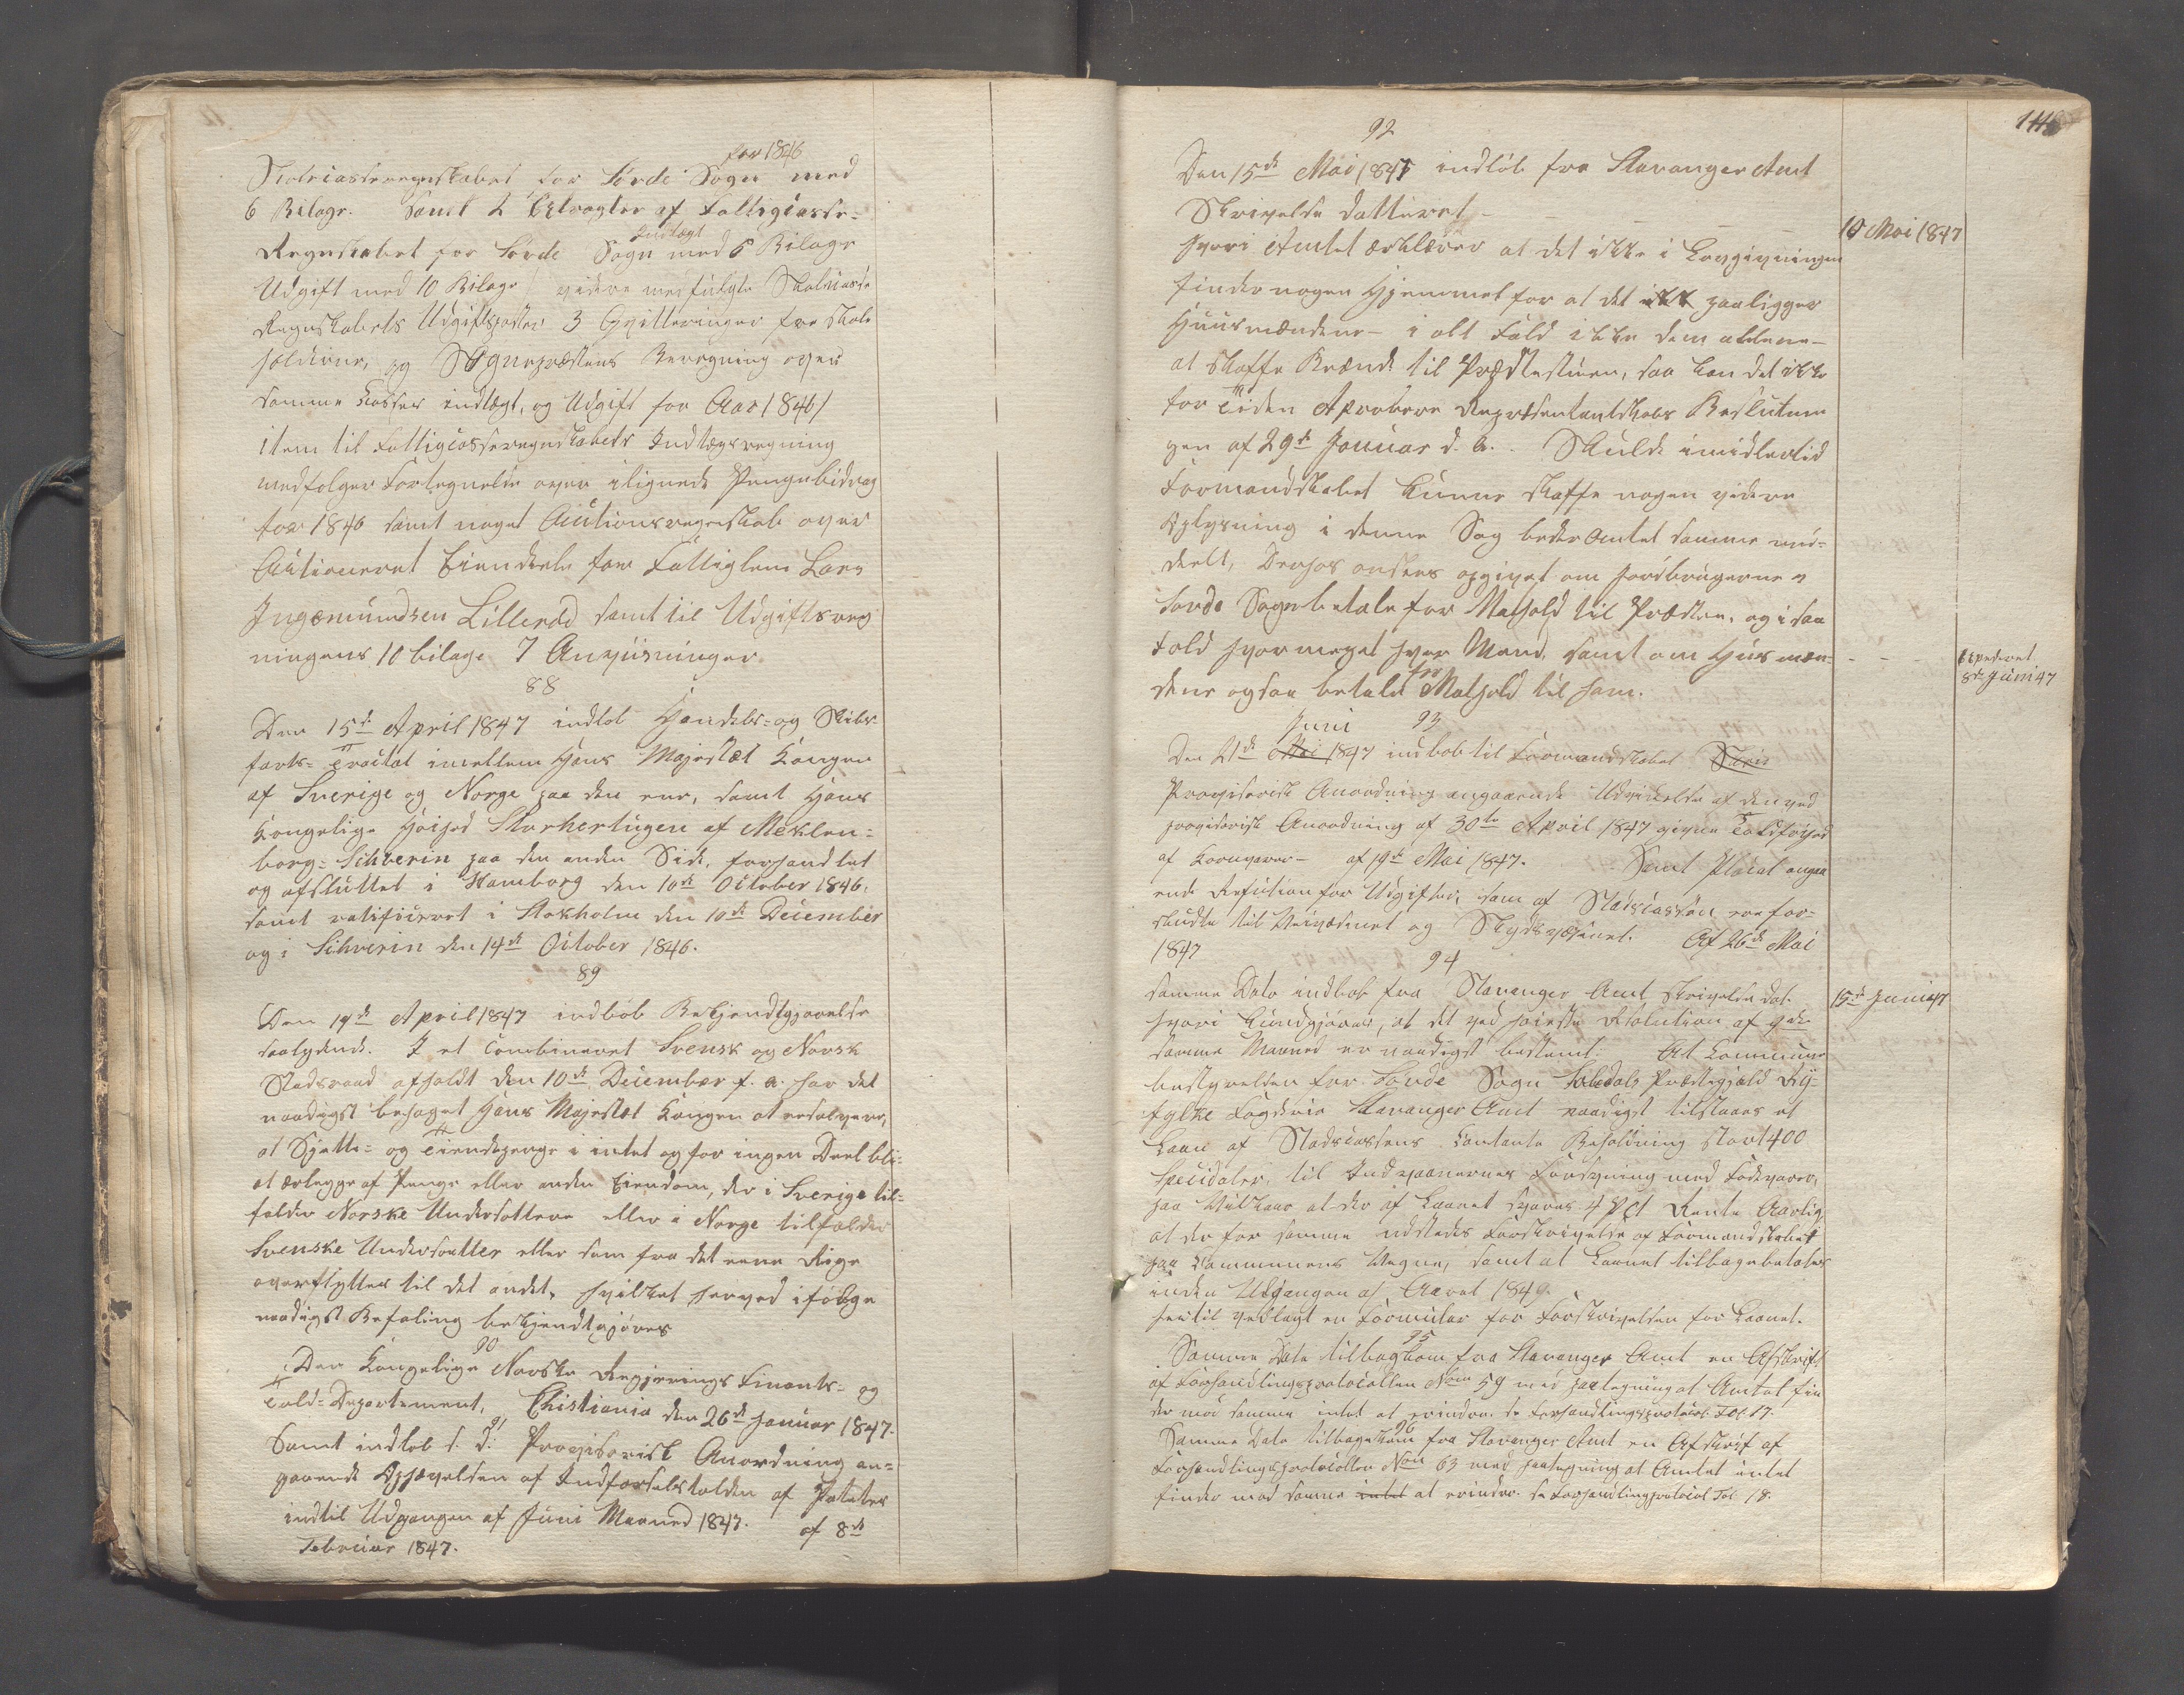 for 1846
Skolecasseregnskabet for Sovde Sogn med
6 Bilage. Samt 2 Extragter af Fattigcasse-
Regnskabet for Sovde Sogn Indtægt med 5 Bilage
Udgift med 10 Bilage videre medfulgte Skolecasse
Regnskabets Udgiftsposter 3 Qvitteringer fra Skole
holderne, og Sognepræstens Beregning over
samme Casses indtægt, og Udgift for Aar 1846/
item til Fattigcasseregnskabets Indtægtsregning
medfølger Fortegnelse over ilignede Pengebidrag
for 1846 samt noget Auctionsregnskab over
Auctioneret Eiendele for Fattiglem Lars
Ingemundsen Lillerød samt til Udgiftsreg
ningens 10 bilage 7 Anviisninger
88
Den 15de April 1847 indløb Handels- og Skibs-
farts- Tractat imellem Hans Majestæt Kongen
af Sverige og Norge paa den ene, samt Hans
Kongelige Høihed Storhertugen af Meklen-
borg-Schverin paa den anden Side, forhandlet
og afsluttet i Hamborg den 10de October 1846.
samt ratificeret i Stokholm den 10de December
og i Schverin den 14de October 1846.
89
Den 19de April 1847 indløb Bekjendtgjørelse
saalydende. I et Combineret Svensk og Norsk
Stadsraad afholdt den 10de December f. a. har det
naadigst behaget Hans Majestæt Kongen at resolvere,
at Sjette- og Tiendepenge i intet og for ingen Deel bli-
at erlegge af Penge eller anden Eiendom, der i Sverige til-
falder Norske Undersotter eller i Norge tilfalder
Svenske Undersotter eller som fra det eene Rige
overflyttes til det andet, hvilket herved ifølge
naadigst Befaling bekjendtgjøres
90
Den Kongelige Norske Regjerings Finants- og
Told-Departement, Christiania den 26de Januar 1847.
91
Samt indløb s. d: Provisorisk Anordning an-
gaaende Ophævelsen af Indførselstolden af Poteter
indtil Udgangen af Juni Maaned 1847. af 8de
Februar 1847.
92
Den 15de Mai 1847 indløb fra Stavanger Amt
Skrivelse datteret - - -
10 Mai 1847
hvori Amtet erklærer at det ikke i Lovgivningen
finder nogen Hjemmel for at det ikke paaligger
Huusmændene - i alt Fald ikke dem allene -
at skaffe Brænde til Præstestuen, saa kan det ikke
for Tiden Aprobere Repræsentantskabs Beslutnin
gen af 29de Januar d. a. Skulde imidlertid
Formandskabet kunne skaffe nogen videre
Oplysning i denne Sag beder Amtet samme med-
deelt, Derhos ønskes opgivet om Jordbrugerne i
Sovde Sogn betale for Mathold til Præsten, og i saa
Fald hvormeget hver Mand, samt om Husmæn- - - -
dene ogsaa betale for Mathold til ham.
Expederet
8de Juni 47
93
Den 21de Mai Juni 1847 indløb til Formandskabet Skriv
Provisorisk Anordning angaaende Udvidelse af den ved
provisorisk Anordning af 30te April 1847 givne Toldfrihed
af Kornvarer - af 19de Mai 1847. Samt Placat angaa
ende Refusion for Udgifter, som af Statscassen ere for-
skudte til Veivæsenet og Skydsvæsenet. Af 26de Mai
1847
94
samme Dato indløb fra Stavanger Amt skrivelse dat.
15de Juni 47
hvori kundgjøres, at det ved høieste Resolution af 9de
samme Maaned er naadigst bestemt: At Kommune
bestyrelsen for Sovde Sogn Suledals Præstegjeld Ry-
fylke Fogderie Stavanger Amt naadigst tilstaaes et
Laan af Stadscassens Contante Beholdning stort 400
Speciedaler, til Indvaanernes Forsyning med Fødevarer,
paa Vilkaar at der af Laanet svares 4 pCt Rente Aarlig,
at der for samme udstædes Forskrivelse af Formandskabet
paa Communens Vegne, samt at Laanet tilbagebetales
inden Udgangen af Aaret 1849.
hertil vedlagt en Formular for Forskrivelsen for Laanet.
95
Samme Dato tilbagekom fra Stavanger Amt en Afskrift
af Forhandlingsprotocollen Nom 59 med paategning at Amtet fin
der mod samme intet at erindre. se Forhandlingsprotocol Fol. 17.
96
Samme Dato tilbagekom fra Stavanger Amt en Afskrift af
Forhandlingsprotocollen Nom 63 med paategning at Amtet intet
finder mod samme intet at erindre. se Forhandlingsprotocol Fol. 18.